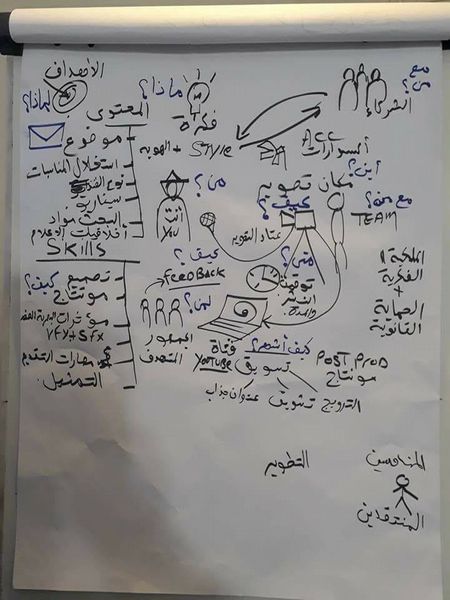 الأهداف
لماذا؟
ماذا؟
فكرة
مع من؟
الشركاء
المحتوى
موضوع
استغلال المناسبات
نوع الفكرة
سيناريو
البحث مواد
أخلاقيات الإعلام
STYLE + الهوية
ACC
أكسسوارات
أين؟
مكان تصوير
من؟
أنت
YOU
كيف؟
عتاد التصوير
مع من؟
TEAM
SKILLS
تصميم
كيف؟
مونتاج
مؤثرات البصرية
VFX + SFX
مهارات
التمثيل
كيف؟
FEEDBACK
لمن؟
الجمهور
المستهدف
متى؟
توقيت
النشر
والمدة
الملكية
الفكرية
+
الحماية
القانونية
كيف أنشر؟
قناة
YOUTUBE
تسويق
POST PROD
مونتاج
الترويج
تشويق
عنوان جذاب
التطوير
المنافسين
المنتقدين